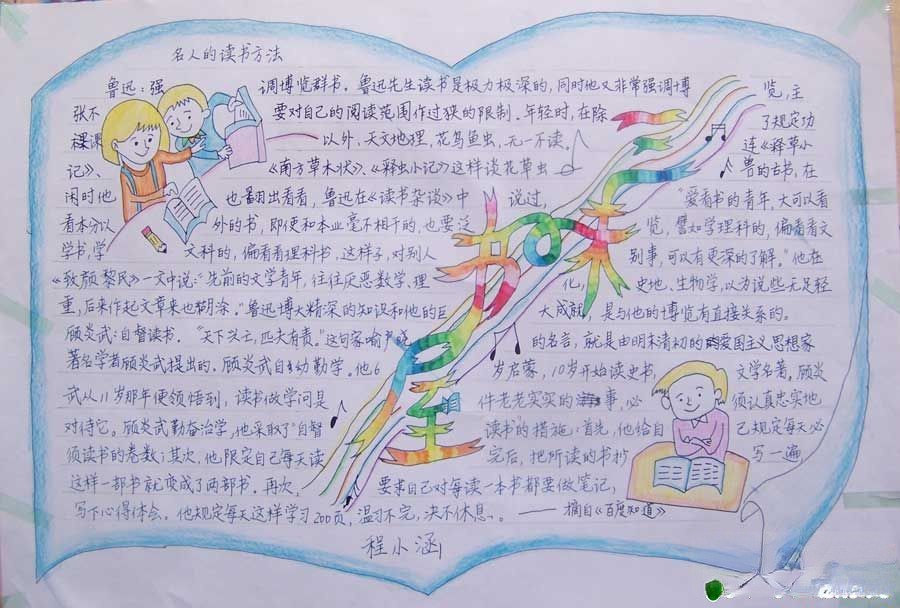 名人的读书方法
鲁迅:强调博览群书。鲁迅先生读书是极力极深的,同时他又非常强调博览,主
张不要对自己的阅读范围作过狭的限制。年轻时,在除了规定功
课课以外,天文地理,花鸟鱼虫,无一不读。连《释草小
记》、《南方草木状》、《释虫小记》这样谈花草虫兽的古书,在
闲时他也翻出看看,鲁迅在《读书杂谈》中说过,“爱看书的青年,大可以看
看本分以外的书,即便和本业毫不相干的,也要泛览,譬如学理科的,偏看看文
学书,学文科的,偏看看理科书,这样子,对别人别事,可以有更深的了解。”他在
《致颜黎民》一文中说:“先前的文学青年,往往厌恶数学,理化,史地,生物学,以为说些无足轻
重,后来作起文章来也糊涂。”鲁迅博大精深的知识和他的巨大成就,是与他的博览有直接关系的。
顾炎武:自督读书。“天下兴亡,匹夫有责。”这句家喻户晓的名言,就是由明末清初的爱国主义思想家
著名学者顾炎武提出的。顾炎武自幼勤学。他6岁启蒙,10岁开始读史书,文学名著。顾炎
武从11岁那年便领悟到,读书做学问是件老老实实的事,必须认真忠实地
对待它。顾炎武勤奋治学,他采取了“自督读书”的措施:首先,他给自己规定每天必
须读书的卷数;其次,他限定自己每天读完后,把所读的书抄写一遍
这样一部书就变成了两部书。再次,要求自己对每读一本书都要做笔记,
写下心得体会。他规定每天这样学习200页,温习不完,决不休息。——摘自《百度知道》
程小涵